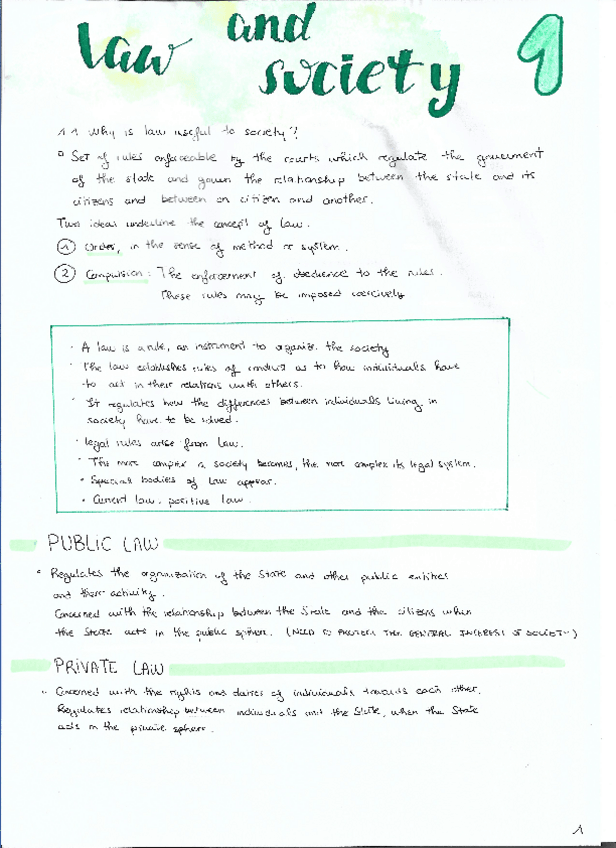 law and society 1
1.1 Why is law useful to society?
Set of rules enforceable by the courts which regulate the government
of the state and govern the relationship between the state and its
citizens and between on citizen and another.
Two ideas underline the concept of law.
1 Order, in the sense of method or system.
2 Compulsion: The enforcement of obedience to the rules.
These rules may be imposed coercively
· A law is a rule, an instrument to organize the society
· The law establishes rules of conduct as to how individuals have
to act in their relations with others.
· It regulates how the differences between individuals living in
society have to be solved.
· legal rules arise from law.
· The more complex a society becomes, the more complex its legal system.
• Special bodies of law appear.
• Current law: positive law
PUBLIC LAW
• Regulates the organization of the State and other public entities
and their activity.
Concerned with the relationship between the State and the citizens when
the State acts in the public sphere. (NEED TO PROTECT THE GENERAL INTEREST OF SOCIETY)
PRIVATE LAW
· Concerned with the rights and duties of individuals towards each other.
Regulates relationship between individuals and the State, when the State
acts in the private sphere.
1